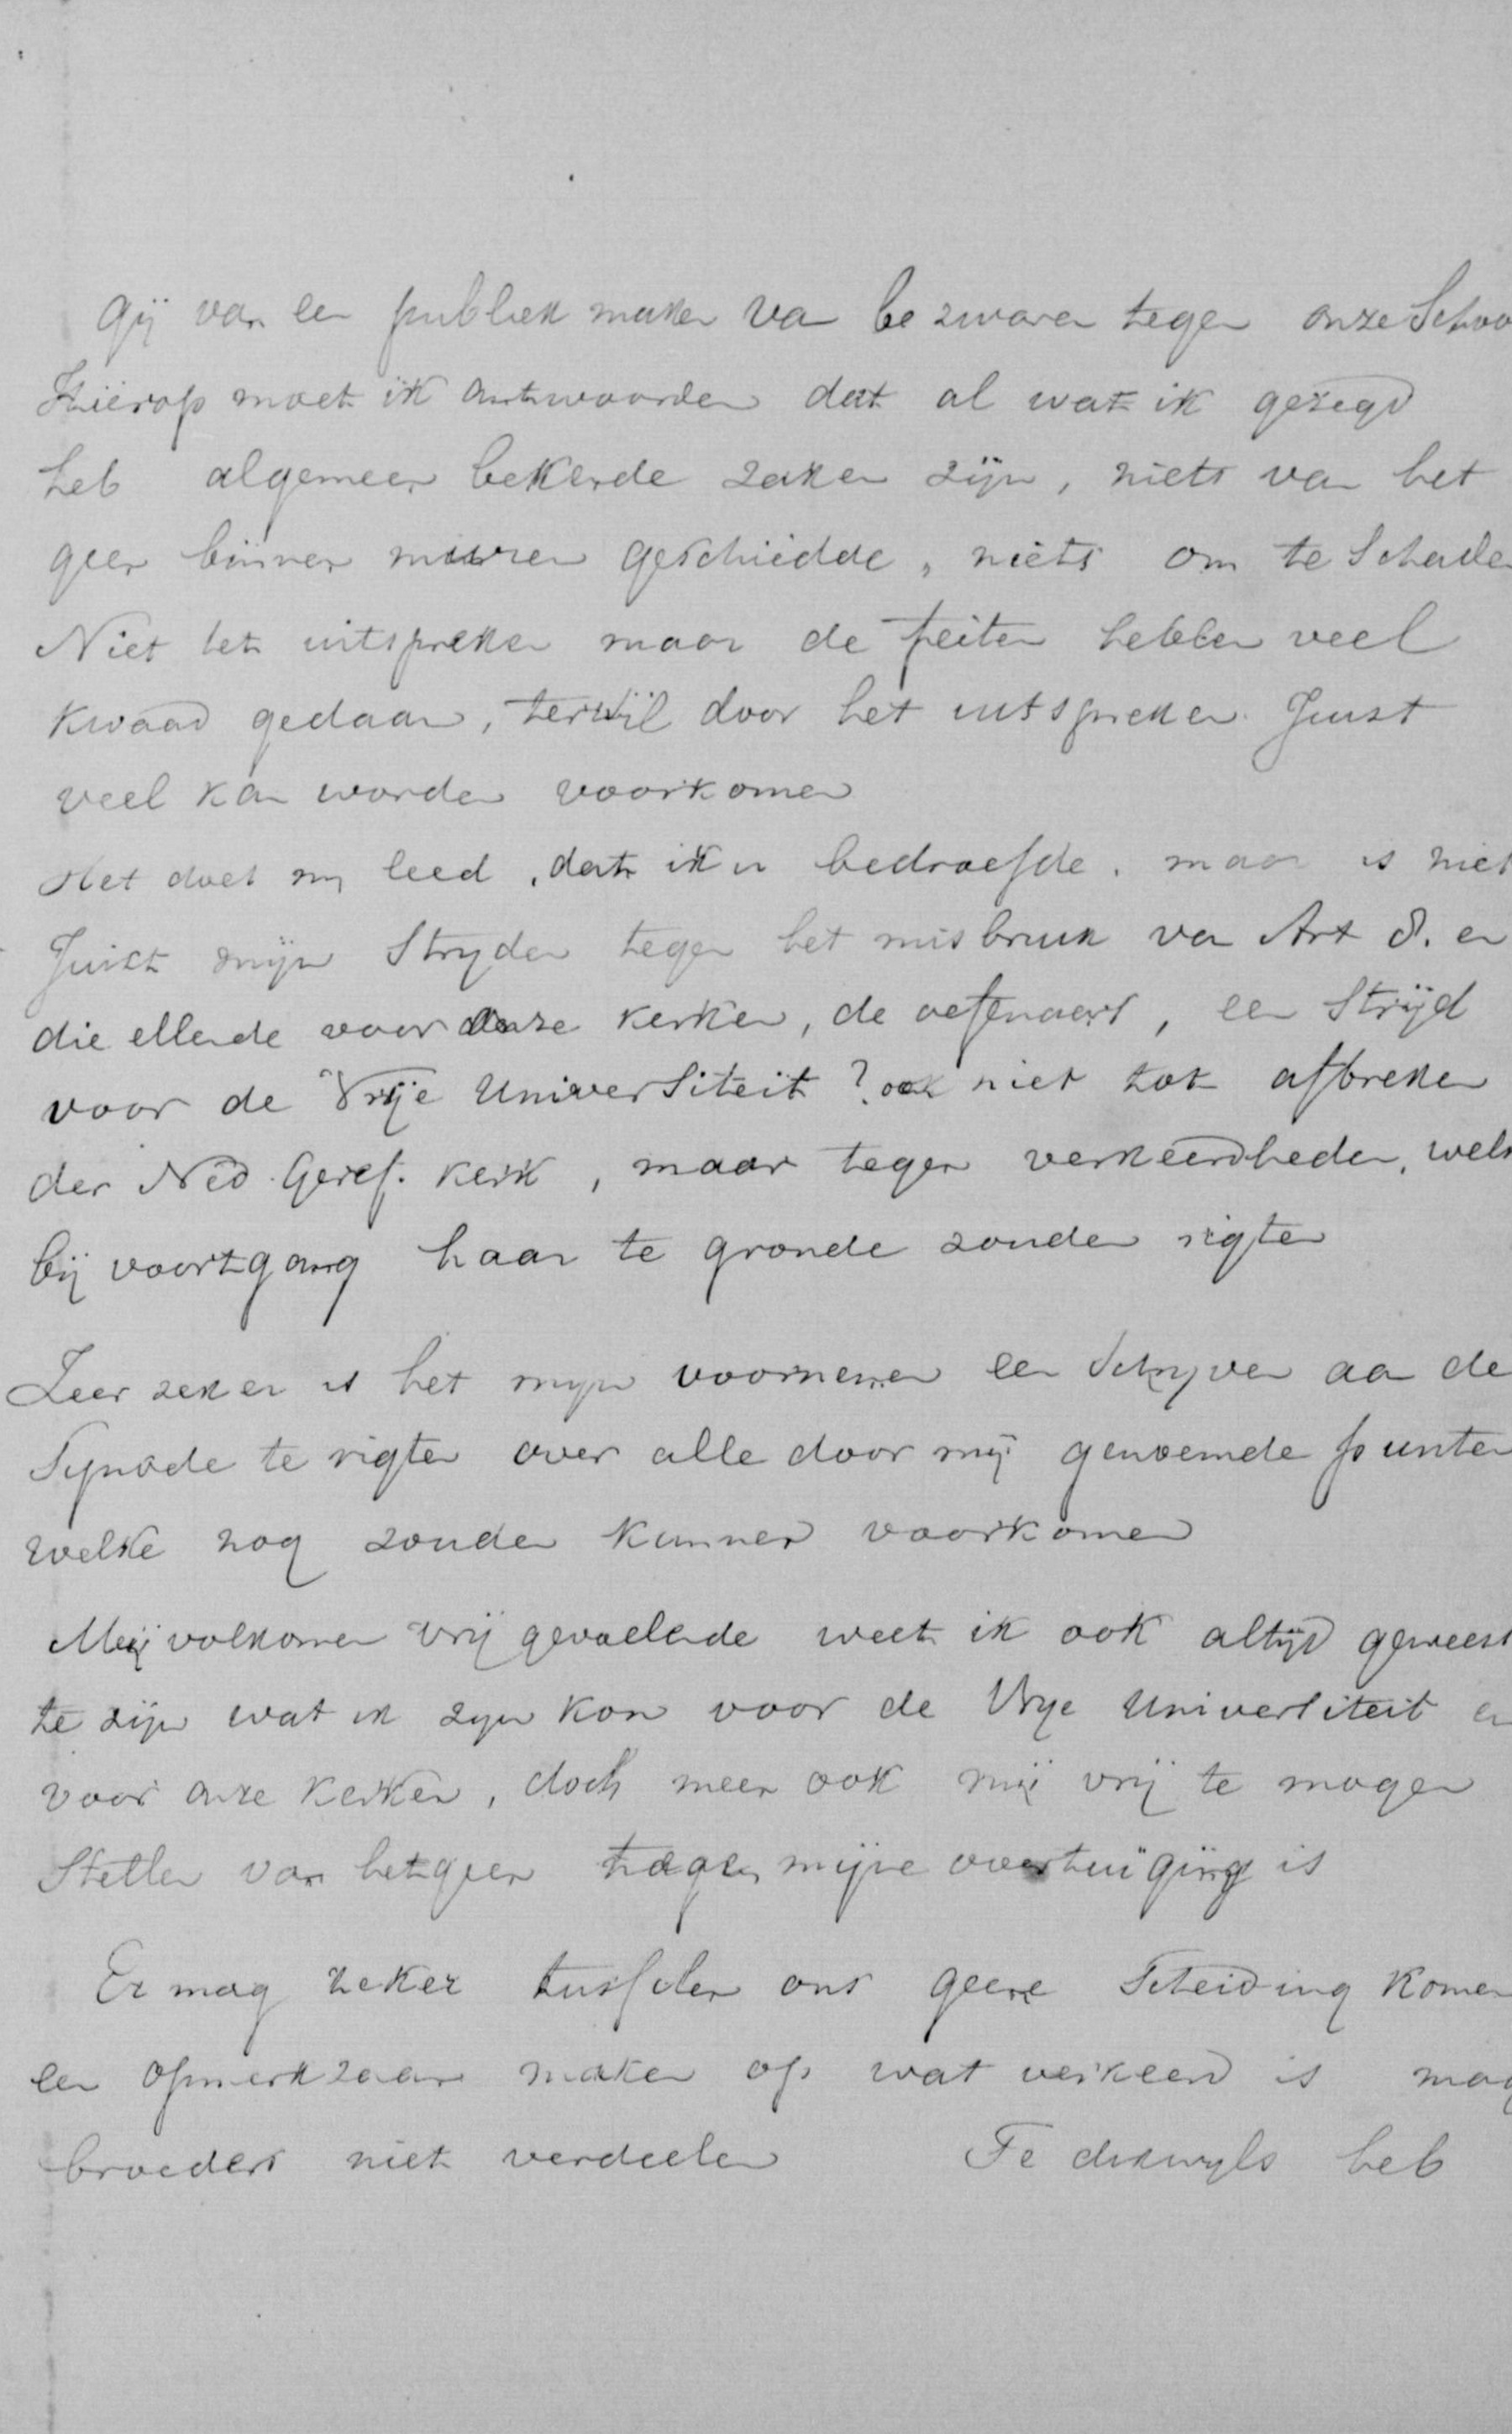 Gij van een publiek maken van bezwaren tegen onze Schoo
Hierop moet ik antwoorden dat al wat ik gezegd
heb algemeen bekende zaken zijn, niets van het
geen binnen muren geschiedde, niets om te Schaden
Niet het uitspreken maar de feiten hebben veel
kwaad gedaan, terwijl door het uitspreken Juist
veel kan worden voorkomen
Het doet mij leed, dat ik u bedroefde, maar is niet
Juist mijn Stryden tegen het misbruik van Art 8. en
die ellende voor onze kerken, de oefenaars, een Strijd
voor de Vrije Universiteit? ook niet tot afbreken
der Ned. Geref. Kerk, maar tegen verkeerdheden, welk
bij voortgang haar te gronde zouden rigten
Zeer zeker is het mijn voornemen een Schryven aan de
Synode te rigten over alle door mij genoemde punten
welke nog zouden kunnen voorkomen
Mij volkomen vrij gevoelende weet ik ook altijd geweest
te zijn wat ik zyn kon voor de Vrye Universiteit en
voor onze kerken, doch meen ook mij vrij te mogen
Stellen van hetgeen tegen mijne overtuiging is
Er mag zeker tusschen ons geene Scheiding komen
een opmerkzaam maken op wat verkeerd is mag
broeders niet verdeelen Te dikwyls heb